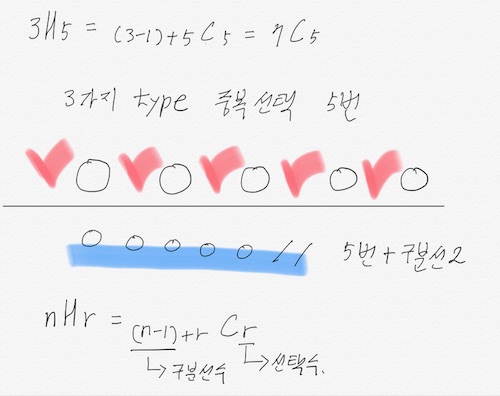 3H5 = (3-1)+5 C 5 = 7 C 5
3가지 type 중복선택 5번
5번 + 구분선2
nHr = (n-1)+r C r
↳구분선수 ↳선택수.